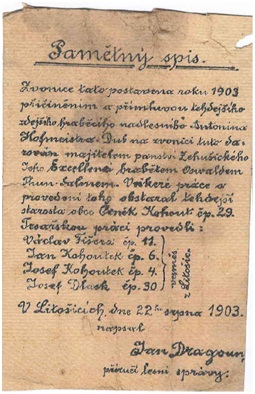 Pamětný spis.
Zvonice tato postavena roku 1903
přičiněním a přímluvou tehdejšího
zdejšího hraběcího nadlesního Antonína
Hofmeistra. Dub na zvonici tuto da-
rován majitelem panství Zehušického
Jeho Excellencí hrabětem Osvaldem
Thun-Salmem. Veškeré práce a
provedení toho obstaral tehdejší
starosta obce Čeněk Kohout čp. 29.
Tesařskou práci provedli:
Václav Fišera čp. 11.
Jan Kohoutek čp. 6.
Josef Kohoutek čp. 4.
Josef Dlask čp. 30
vesměs
z Litošic.
V Litošicích, dne 22ho srpna 1903.
napsal
Jan Dragoun,
příručí lesní správy.